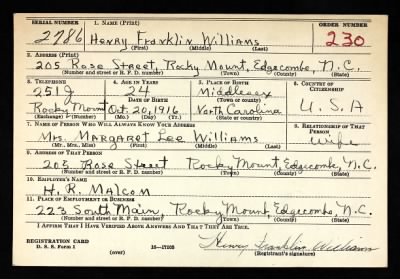 SERIAL NUMBER 1. NAME (Print) ORDER NUMBER
2786 Henry Franklin Williams 230
(First) (Middle) (Last)
2. ADDRESS (Print)
205 Rose Street, Rocky Mount, Edgecombe N.C.
(Number and street or R. F. D. number) (Town) (County) (State)
3. TELEPHONE 4. AGE IN YEARS 5. PLACE OF BIRTH 6. COUNTRY OF CITIZENSHIP
251J 24 Middlesex
DATE OF BIRTH (Town or county)
Rocky Mount Oct. 20, 1916 North Carolina U.S.A
(Exchange) (Number) (Mo.) (Day) (Yr.) (State or country)
7. NAME OF PERSON WHO WILL ALWAYS KNOW YOUR ADDRESS 8. RELATIONSHIP OF THAT PERSON
Mrs. Margaret Lee Williams Wife
(Mr., Mrs., Miss) (First) (Middle) (Last)
9. ADDRESS OF THAT PERSON
205 Rose Street Rocky Mount, Edgecombe, N.C.
(Number and street or R. F. D. number) (Town) (County) (State)
10. EMPLOYER'S NAME
H. R. Malcom
11. PLACE OF EMPLOYMENT OR BUSINESS
223 South Main, Rocky Mount, Edgecombe, N.C.
(Number and street or R. F. D. number) (Town) (County) (State)
I AFFIRM THAT I HAVE VERIFIED ABOVE ANSWERS AND THAT THEY ARE TRUE.
REGISTRATION CARD Henry Franklin Williams
D. S. S. Form 1 (over) 16—17105 (Registrant's signature)